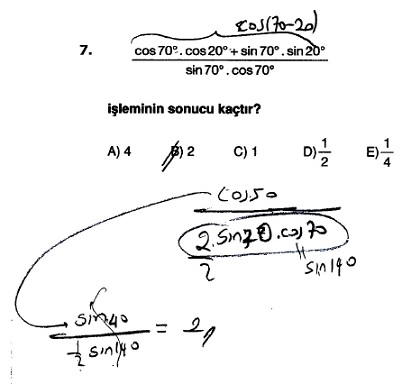 cos(70-20)
7. cos70°.cos20°+sin70°.sin20°
sin70°.cos70°
işleminin sonucu kaçtır?
A) 4 B) 2 C) 1 D) 1/2 E) 1/4
cos50
2.sin70.cos70
2
sin140
sin40
1/2 sin140 = 2